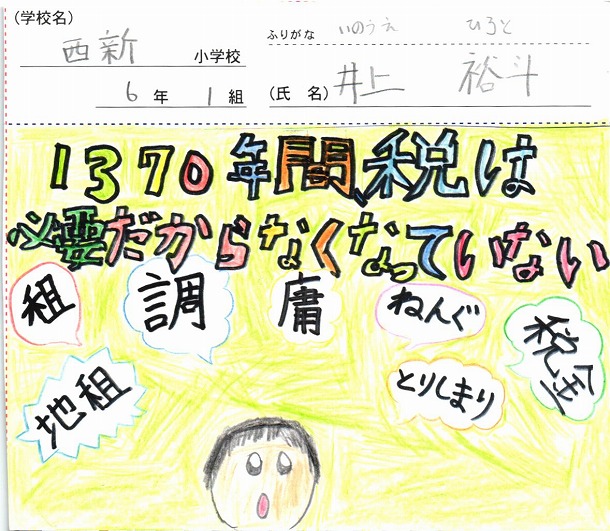 (学校名)
ふりがな いのうえ ひろと
西新 小学校
6年 1組
(氏 名) 井上 裕斗
1370年間、税は
必要だからなくなっていない
租 調 庸 ねんぐ 税金
地租 とりしまり